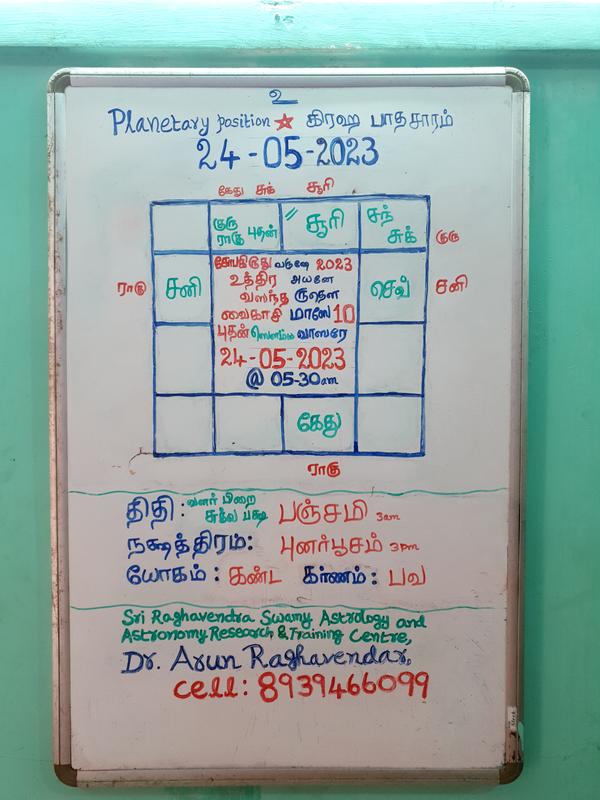 உ
Planetary position கிரஹ பாதசாரம்
24-05-2023
கேது சுக் சூரி
குரு ராகு புதன் சூரி சந் சுக் குரு
ராகு சனி செவ் சனி
சோபகிருது வருஷே 2023
உத்திர அயனே
வஸந்த ருதௌ
வைகாசி மாஸே 10
புதன் ஸௌம்ய வாஸரே
24-05-2023
@ 05-30am
கேது
ராகு
திதி : வளர் பிறை சுக்ல பக்ஷ பஞ்சமி 3am
நக்ஷத்திரம்: புனர்பூசம் 3pm
யோகம் : கண்ட கரணம் : பவ
Sri Raghavendra Swamy Astrology and
Astronomy Research & Training Centre,
Dr. Arun Raghavendar,
cell: 8939466099